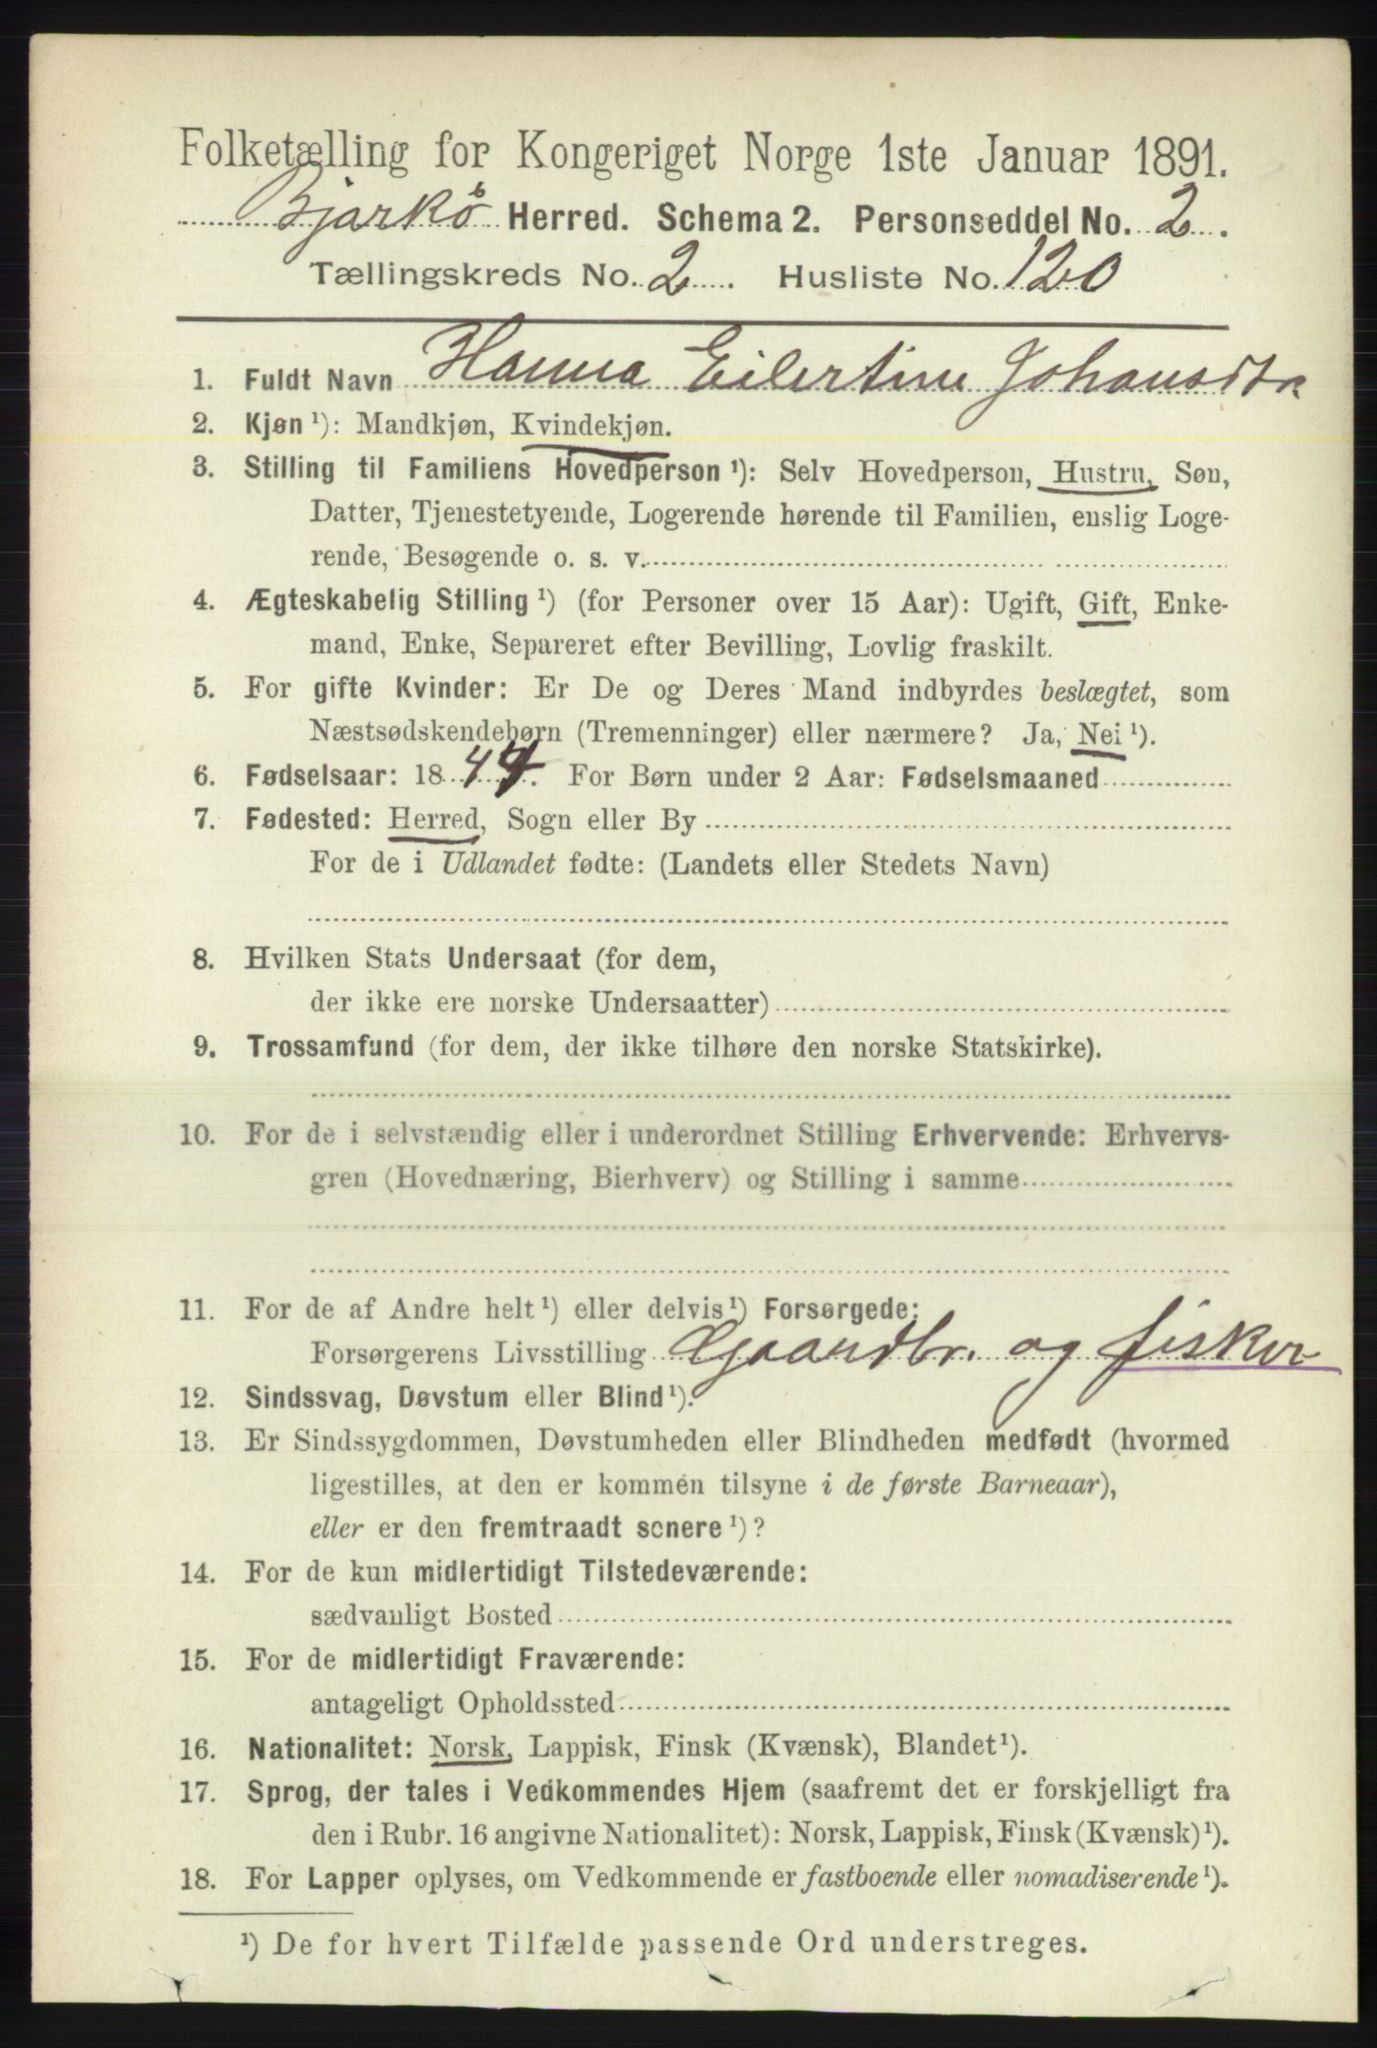 Folketælling for Kongeriget Norge 1ste Januar 1891.
Bjarkö Herred. Schema 2. Personseddel No. 2.
Tællingskreds No. 2. Husliste No. 120
1. Fuldt Navn Hanna Eilertine Johansdtr
2. Kjøn ¹): Mandkjøn, Kvindekjøn.
3. Stilling til Familiens Hovedperson ¹): Selv Hovedperson, Hustru, Søn,
Datter, Tjenestetyende, Logerende hørende til Familien, enslig Loge-
rende, Besøgende o. s. v.
4. Ægteskabelig Stilling ¹) (for Personer over 15 Aar): Ugift, Gift, Enke-
mand, Enke, Separeret efter Bevilling, Lovlig fraskilt.
5. For gifte Kvinder: Er De og Deres Mand indbyrdes beslægtet, som
Næstsødskendebørn (Tremenninger) eller nærmere? Ja, Nei ¹).
6. Fødselsaar: 18 44. For Børn under 2 Aar: Fødselsmaaned
7. Fødested: Herred, Sogn eller By
For de i Udlandet fødte: (Landets eller Stedets Navn)
8. Hvilken Stats Undersaat (for dem,
der ikke ere norske Undersaatter)
9. Trossamfund (for dem, der ikke tilhøre den norske Statskirke).
10. For de i selvstændig eller i underordnet Stilling Erhvervende: Erhvervs-
gren (Hovednæring, Bierhverv) og Stilling i samme
11. For de af Andre helt ¹) eller delvis ¹) Forsørgede:
Forsørgerens Livsstilling Gaardbr. og fisker
12. Sindssvag, Døvstum eller Blind ¹).
13. Er Sindssygdommen, Døvstumheden eller Blindheden medfødt (hvormed
ligestilles, at den er kommen tilsyne i de første Barneaar),
eller er den fremtraadt senere ¹)?
14. For de kun midlertidigt Tilstedeværende:
sædvanligt Bosted
15. For de midlertidigt Fraværende:
antageligt Opholdssted
16. Nationalitet: Norsk, Lappisk, Finsk (Kvænsk), Blandet ¹).
17. Sprog, der tales i Vedkommendes Hjem (saafremt det er forskjelligt fra
den i Rubr. 16 angivne Nationalitet): Norsk, Lappisk, Finsk (Kvænsk) ¹).
18. For Lapper oplyses, om Vedkommende er fastboende eller nomadiserende ¹).
¹) De for hvert Tilfælde passende Ord understreges.